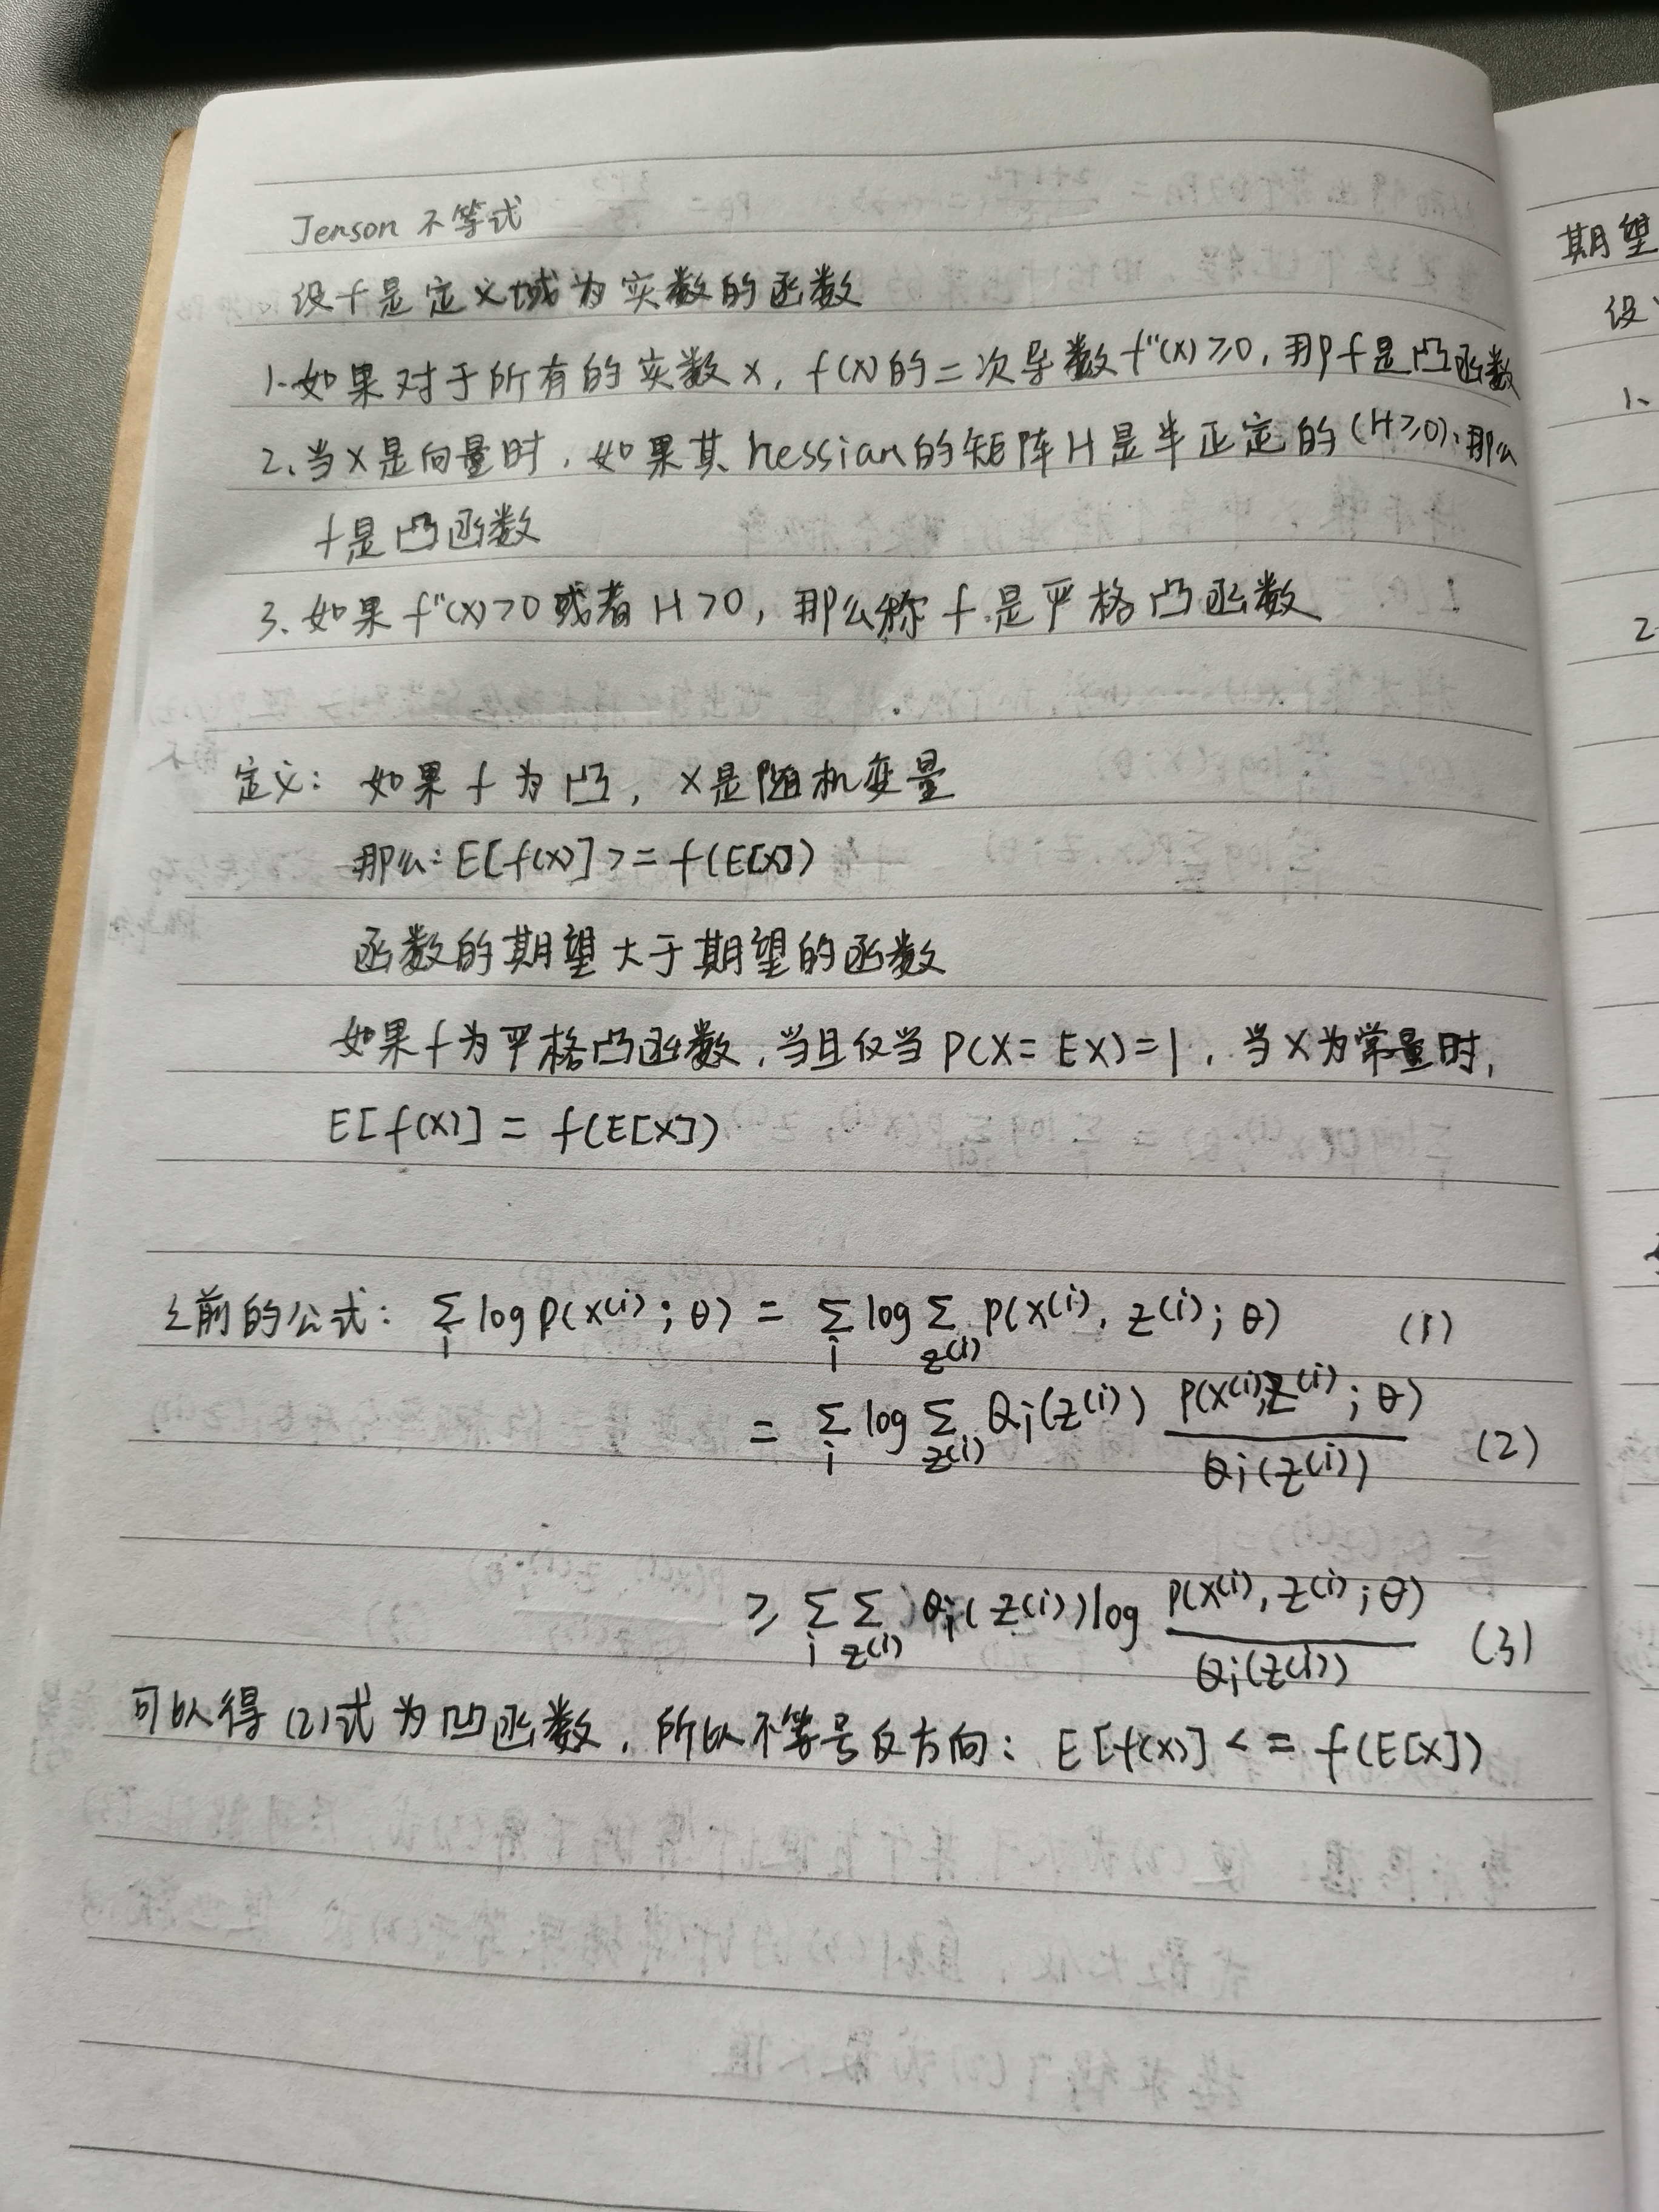 Jenson 不等式
设f是定义域为实数的函数
1.如果对于所有的实数x, f(x)的二次导数f''(x)≥0, 那f是凸函数
2.当X是向量时,如果其hessian的矩阵H是半正定的(H≥0),那么
f是凸函数
3.如果f''(x)>0或者H>0,那么称f是严格凸函数
定义: 如果f为凸, X是随机变量
那么: E[f(x)] >= f(E[X])
函数的期望大于期望的函数
如果f为严格凸函数,当且仅当P(X=EX)=1,当X为常量时,
E[f(X)] = f(E[X])
之前的公式: ∑_i log P(x^(i); θ) = ∑_i log ∑_z^(i) P(x^(i), z^(i); θ) (1)
= ∑_i log ∑_z^(i) Qi(z^(i)) P(x^(i), z^(i); θ) / Qi(z^(i)) (2)
≥ ∑_i ∑_z^(i) Qi(z^(i)) log P(x^(i), z^(i); θ) / Qi(z^(i)) (3)
可以得(2)式为凹函数,所以不等号反方向: E[f(x)] <= f(E[X])
期望
设
1、
2